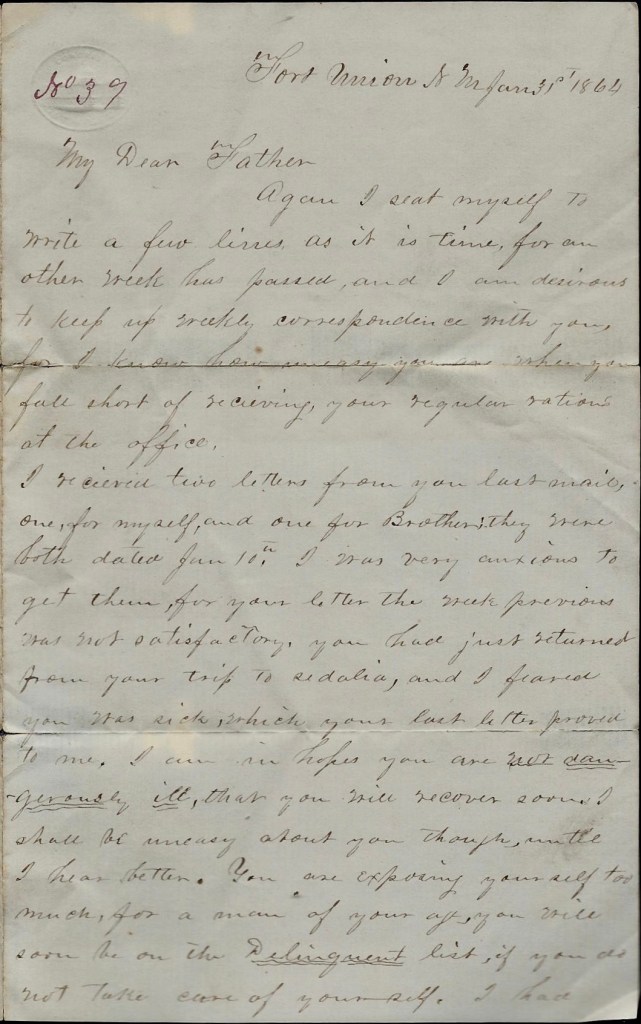 No 39
Fort Union N M Jan 31st 1864
My Dear Father
Again I seat myself to
write a few lines, as it is time, for an
other week has passed, and I am desirous
to keep up weekly correspondence with you,
for I know how uneasy you are when you
fall short of recieving, your regular rations
at the office.
I recieved two letters from you last mail,
one, for myself, and one for Brother; they were
both dated Jan 10th. I was very anxious to
get them, for your letter the week previous
was not satisfactory, you had just returned
from your trip to sedalia, and I feared
you was sick, which your last letter proved
to me. I am in hopes you are not dan-
-gerously ill, that you will recover soon. I
shall be uneasy about you though, untill
I hear better. You are exposing yourself too
much, for a man of your age, you will
soon be on the Delinquent list, if you do
not take care of yourself. I had